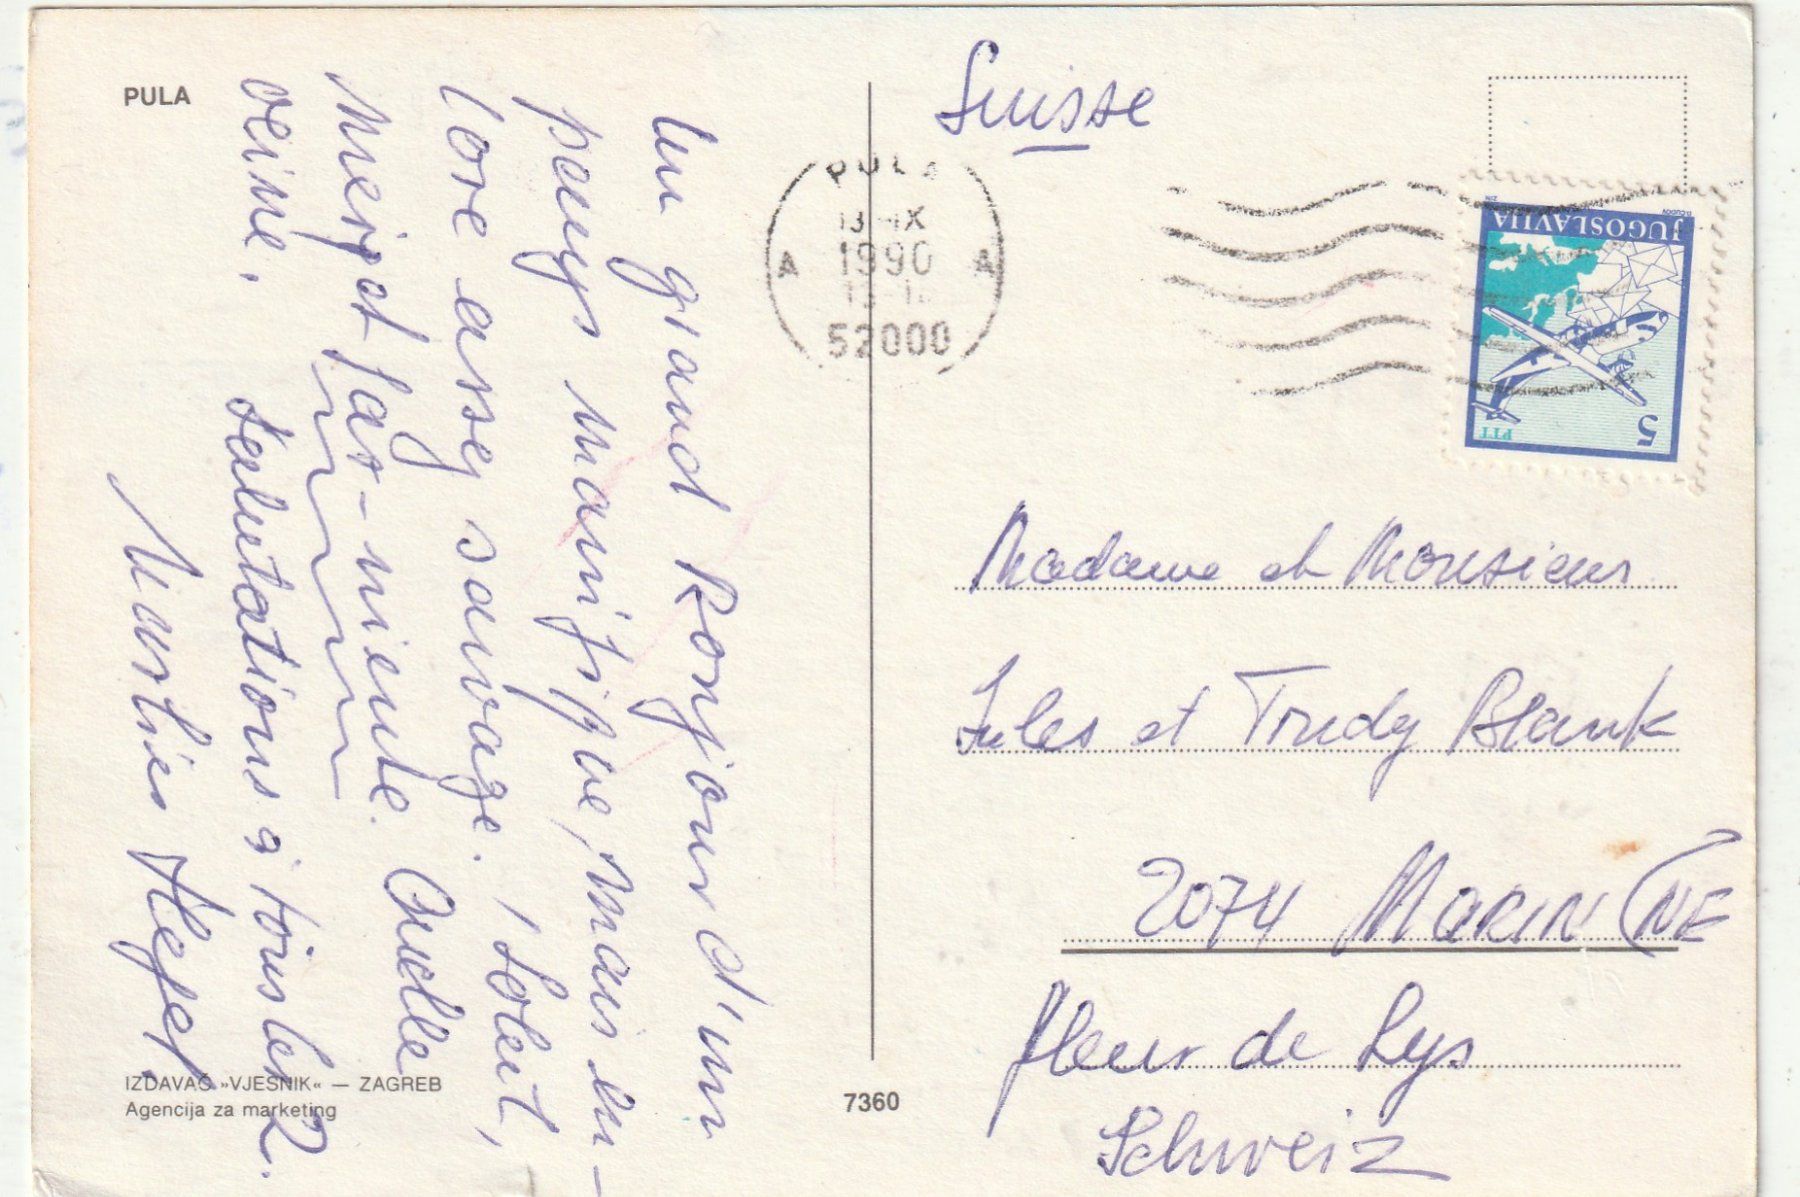 PULA
Un grand Bonjour d'un
pays manifique, mais en-
core assez sauvage. Soleil,
mer et far-niente. Quelle
veine.
Salutations à tous les 2.
Marlies Hefel
IZDAVAČ »VJESNIK« — ZAGREB
Agencija za marketing
7360
Suisse
PULA
13-IX
1990
A A
52000
JUGOSLAVIJA
PTT
5
Madame et Monsieur
Jules et Trudy Blank
2074 MARIN (NE
Fleur de Lys
Schweiz